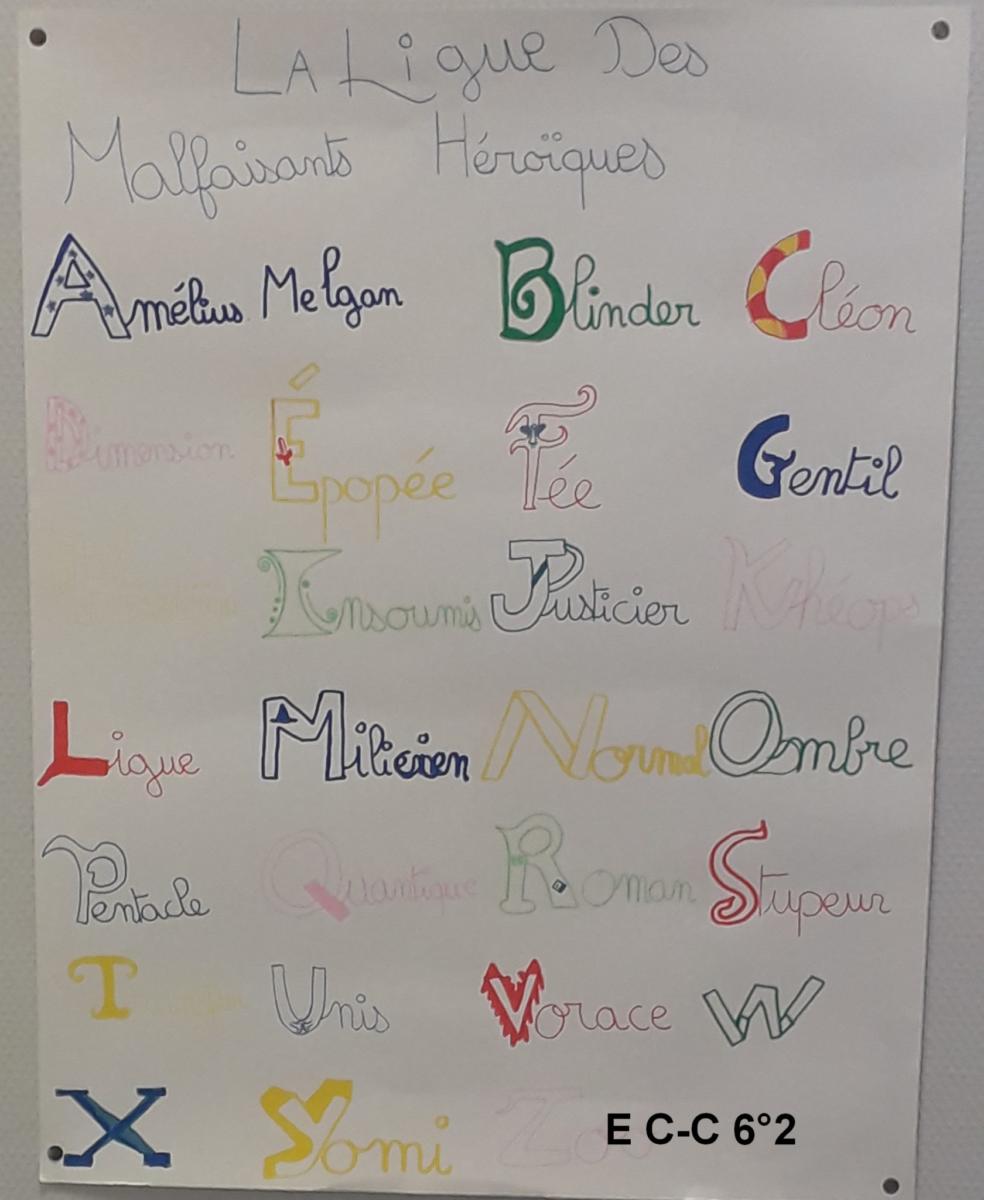 La Ligue Des
Malfaisants Héroïques
Amélius Melgan Blinder Cléon
Dimension Épopée Fée Gentil
Insoumis Justicier Khéops
Ligue Milicien Normal Ombre
Pentacle Quantique Roman Stupeur
T Unis Vorace W
X Yomi E C-C 6°2